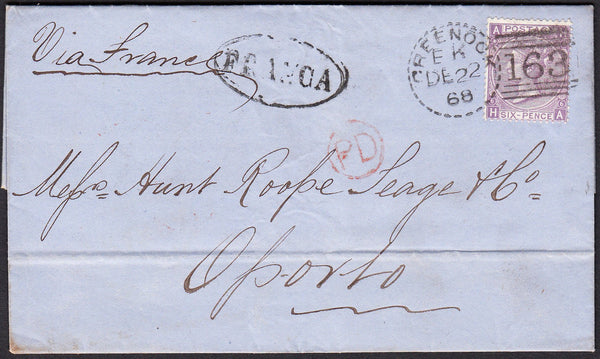 Via France
FRANCA
GREENOCK
EK
DE 22
68
163
A POSTAGE
H SIX-PENCE A
PD
Messrs Hunt Roope Teage & Co
Oporto